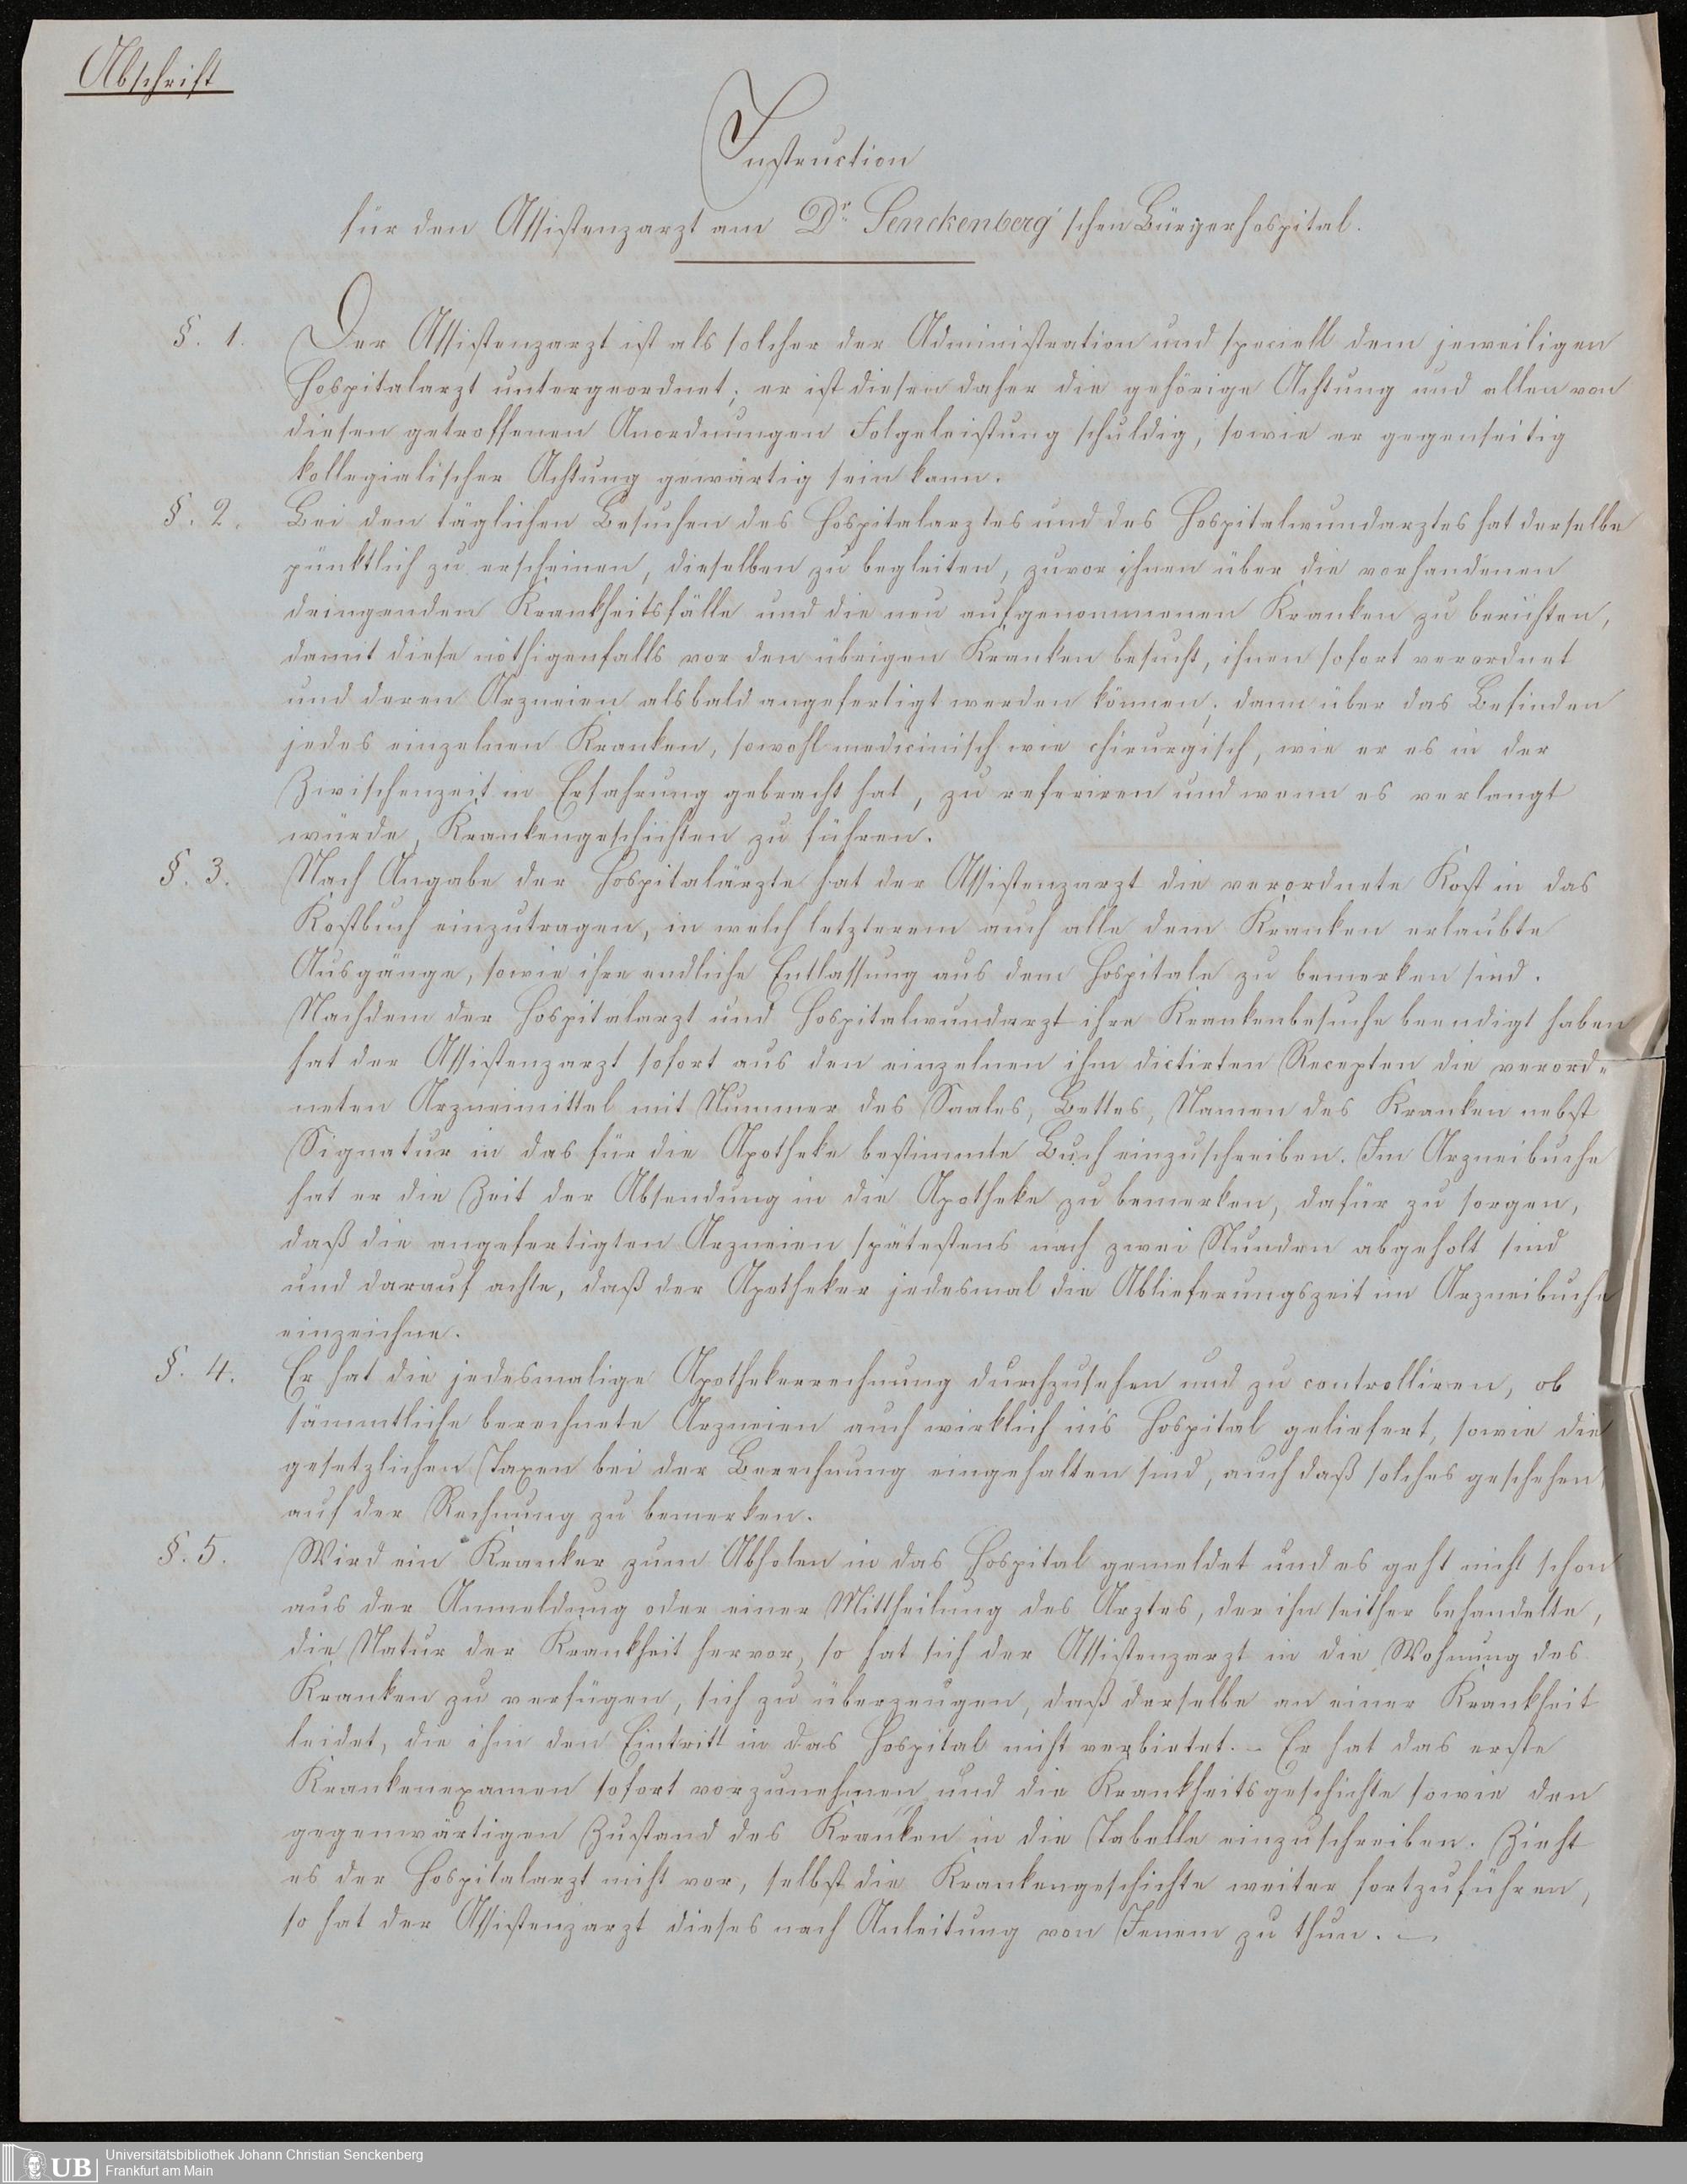 Abschrift
Instruction
für den Assistenzarzt am Dr. Senckenberg'schen Bürgerhospital.
§. 1. Der Assistenzarzt ist als solcher der Administration und speciell dem jeweiligen
Hospitalarzt untergeordnet; er ist diesen daher die gehörige Achtung und allen von
diesen getroffenen Anordnungen Folgeleistung schuldig, sowie er gegenseitig
kollegialischer Achtung gewärtig sein kann.
§. 2. Bei den täglichen Besuchen des Hospitalarztes und des Hospitalwundarztes hat derselbe
pünktlich zu erscheinen, dieselben zu begleiten, zuvor ihnen über die vorhandenen
dringenden Krankheitsfälle und die neu aufgenommenen Kranken zu berichten,
damit diese nöthigenfalls vor den übrigen Kranken besucht, ihnen sofort verordnet
und deren Arzneien alsbald angefertigt werden können; dann über das Befinden
jedes einzelnen Kranken, sowohl medicinisch wie chirurgisch, wie er es in der
Zwischenzeit in Erfahrung gebracht hat, zu referiren und wenn es verlangt
würde, Krankengeschichten zu führen.
§. 3. Nach Angabe der Hospitalärzte hat der Assistenzarzt die verordnete Kost in das
Kostbuch einzutragen, in welch letzterem auch alle dem Kranken erlaubte
Ausgänge, sowie ihre endliche Entlassung aus dem Hospitale zu bemerken sind.
Nachdem der Hospitalarzt und Hospitalwundarzt ihre Krankenbesuche beendigt haben
hat der Assistenzarzt sofort aus den einzelnen ihm dictirten Recepten die verord-
neten Arzneimittel mit Nummer des Saales, Bettes, Namen des Kranken nebst
Signatur in das für die Apotheke bestimmte Buch einzuschreiben. Im Arzneibuche
hat er die Zeit der Absendung in die Apotheke zu bemerken, dafür zu sorgen,
daß die angefertigten Arzneien spätestens nach zwei Stunden abgeholt sind
und darauf achte, daß der Apotheker jedesmal die Ablieferungszeit im Arzneibuche
einzeichne.
§. 4. Er hat die jedesmalige Apothekerrechnung durchzusehen und zu controlliren, ob
sämmtliche berechnete Arzneien auch wirklich in's Hospital geliefert, sowie die
gesetzlichen Taxen bei der Berechnung eingehalten sind, auch daß solches geschehen
auf der Rechnung zu bemerken.
§. 5. Wird ein Kranker zum Abholen in das Hospital gemeldet und es geht nicht schon
aus der Anmeldung oder einer Mittheilung des Arztes, der ihn seither behandelte,
die Natur der Krankheit hervor, so hat sich der Assistenzarzt in die Wohnung des
Kranken zu verfügen, sich zu überzeugen, daß derselbe an einer Krankheit
leidet, die ihm den Eintritt in das Hospital nicht verbietet. – Er hat das erste
Krankenexamen sofort vorzunehmen und die Krankheitsgeschichte sowie den
gegenwärtigen Zustand des Kranken in die Tabelle einzuschreiben. Zieht
es der Hospitalarzt nicht vor, selbst die Krankengeschichte weiter fortzuführen,
so hat der Assistenzarzt dieses nach Anleitung von Jenem zu thun. –
UB Universitätsbibliothek Johann Christian Senckenberg
Frankfurt am Main